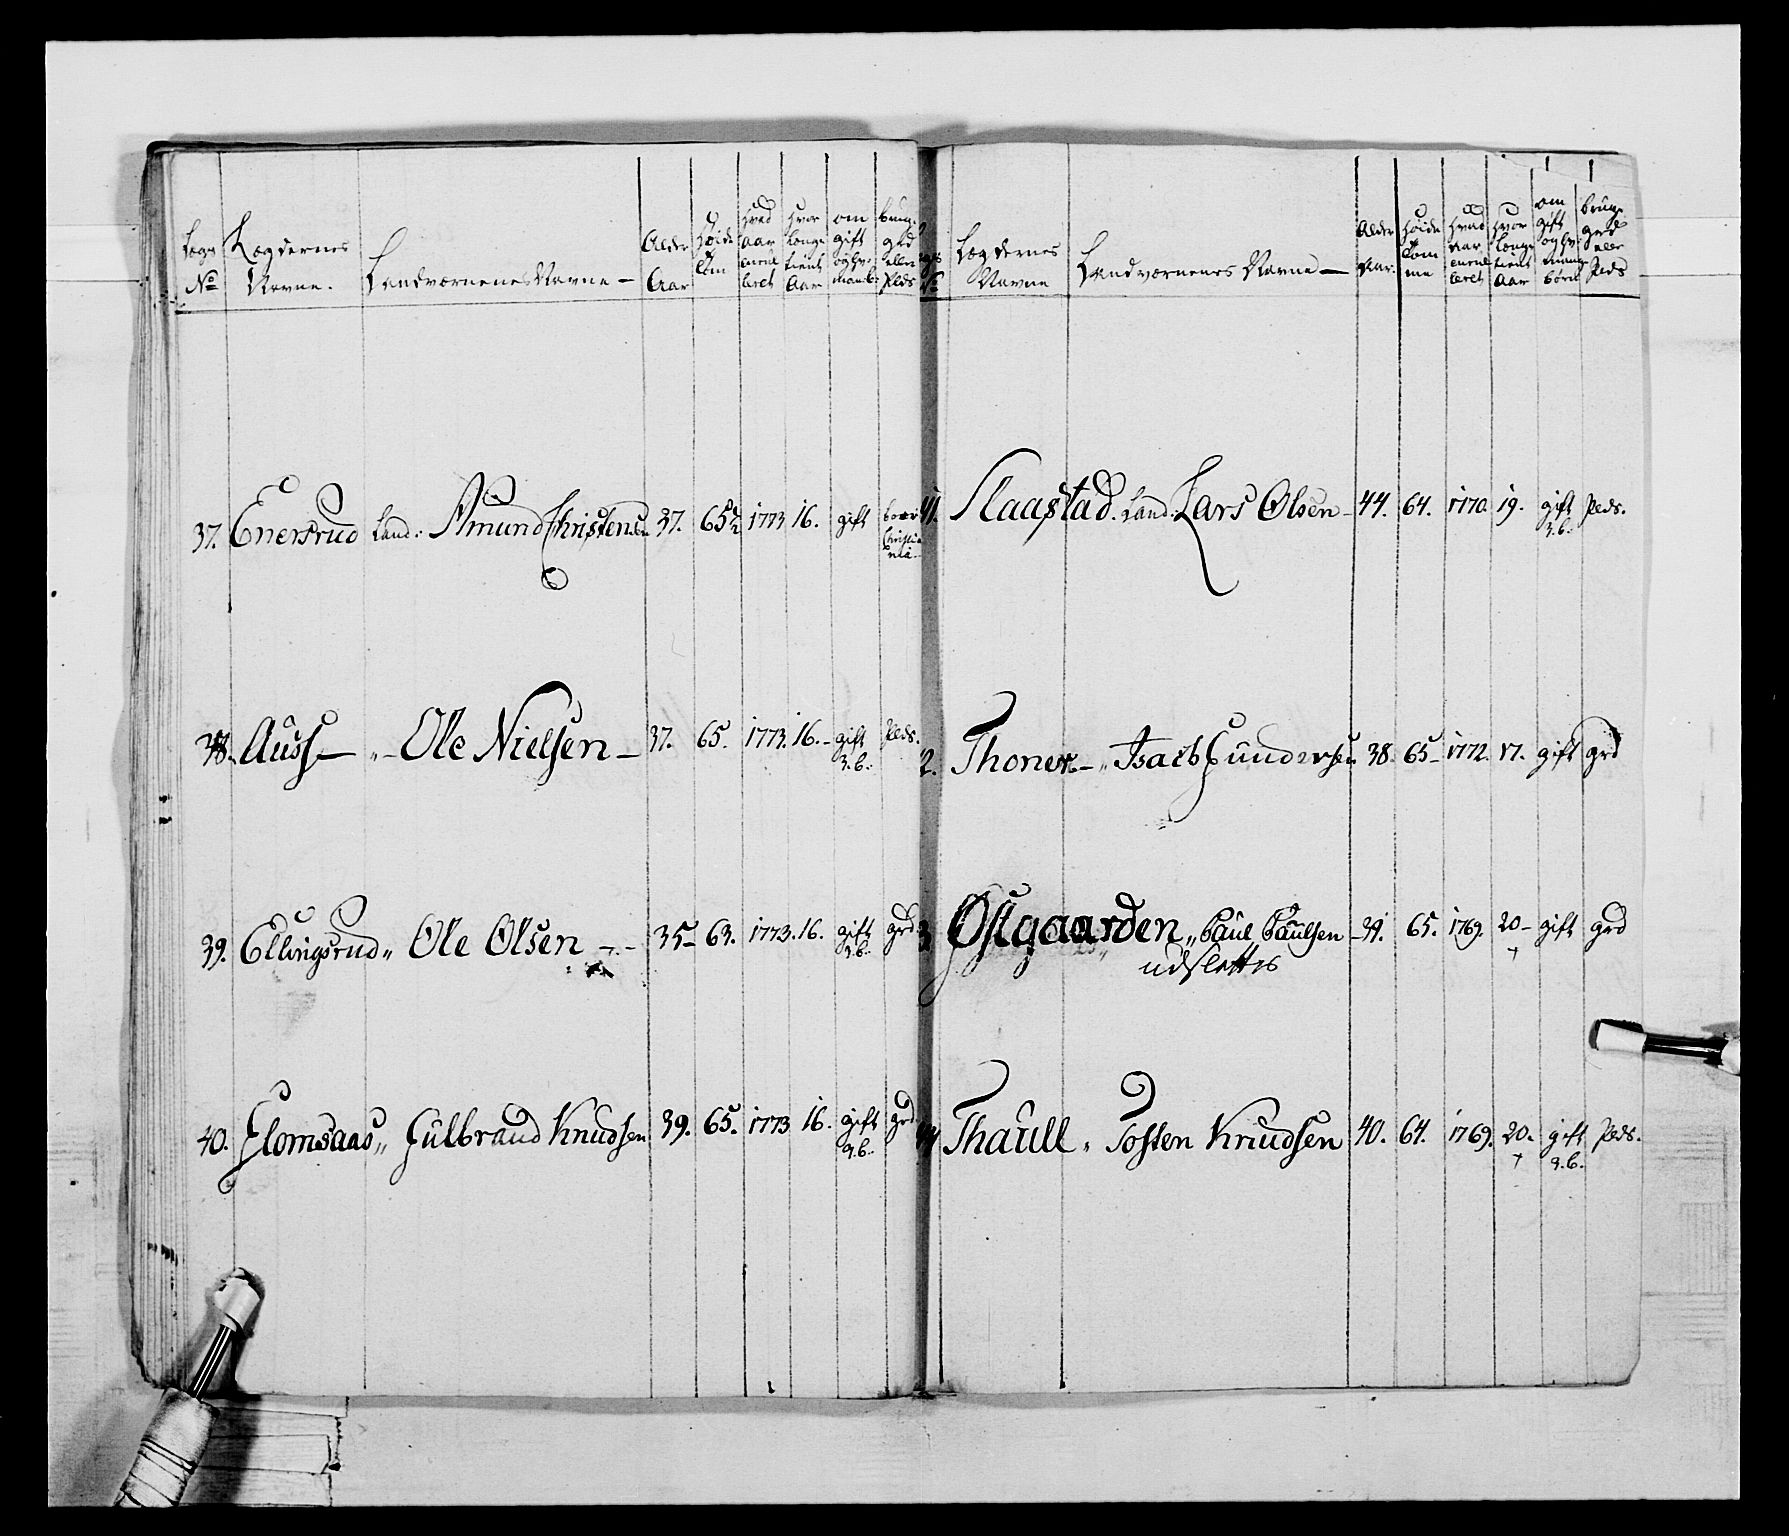 Legs No | Lægdernes Navne. | Landværnenes Navne — | Alder Aar | Høide Tom | Hvad Aar enrul leret | Hvor længe tient Aar | om gift og hv: mange b: | brug. grd eller Pleds
37. Enersrud Land: Amund Christensen 37. 65½ 1773 16. gift boer Christia nia
38. Auss — „ — Ole Nielsen — 37. 65. 1773. 16. — gift 3. b. Pleds.
39. Ellingsrud „ Ole Olsen — 35 — 63. 1773. 16. gift 3. b. grd
40. Flomsaas „ Gulbrand Knudsen 39. 65. 1773 16. gift 2. b. grd
Lægdernes Navne | Landværnenes Navne — | Alder Aar. | Høide Tom me | Hvad Aar enrul leret | Hvor længe tient Aar | om gift og hv: mange børn | bruge grd eller Pleds
41. Slaastad. Land. Lars Olsen — 44. 64. 1770. 19. gift 3. b. Pleds.
2. Thoner — „ Isach Gundersen 38. 65 — 1772. 17. gift grd
3 Østgaarden „ Paul Paulsen — 39. 65. 1769. 20 — gift grd
udslettes
44 Thaull „ Tosten Knudsen 40. 64. 1769. 20. gift 2. b. Pleds.